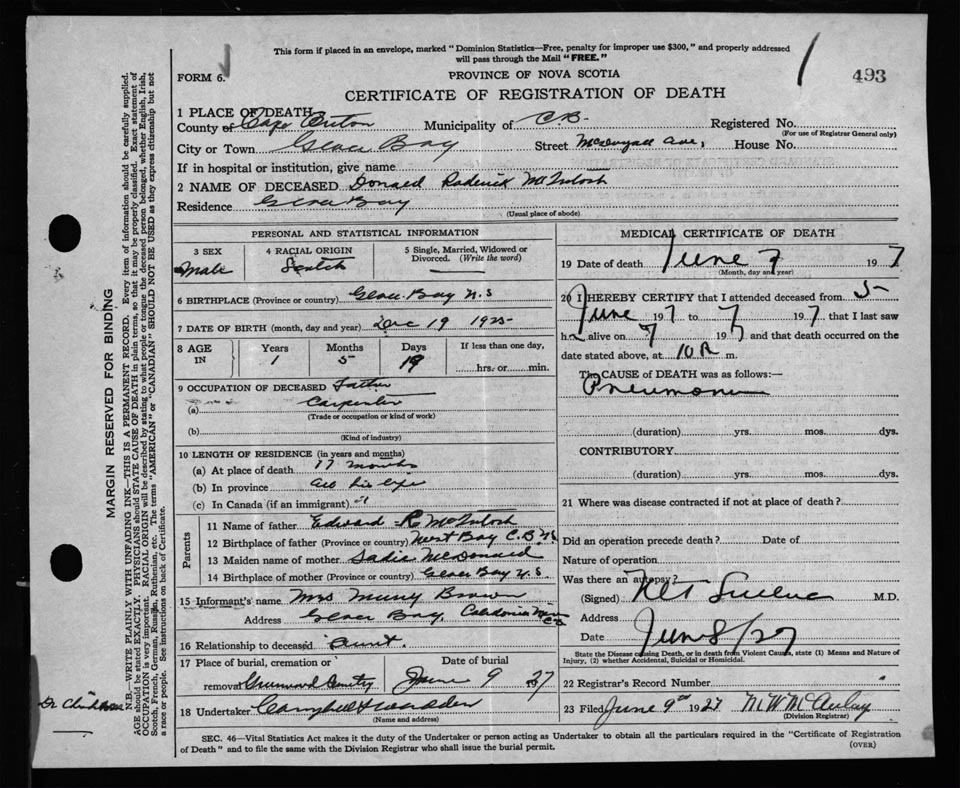 This form if placed in an envelope, marked "Dominion Statistics—Free, penalty for improper use $300," and properly addressed
will pass through the Mail "FREE."
FORM 6.
PROVINCE OF NOVA SCOTIA
493
CERTIFICATE OF REGISTRATION OF DEATH
1 PLACE OF DEATH
County of Cape Breton Municipality of C.B. Registered No.
(For use of Registrar General only)
City or Town Glace Bay Street McDougall Ave, House No.
If in hospital or institution, give name
2 NAME OF DECEASED Donald Roderick McIntosh
Residence Glace Bay
(Usual place of abode)
PERSONAL AND STATISTICAL INFORMATION
3 SEX 4 RACIAL ORIGIN 5 Single, Married, Widowed or
Divorced. (Write the word)
Male Scotch
6 BIRTHPLACE (Province or country) Glace Bay N.S
7 DATE OF BIRTH (month, day and year) Dec 19 1925
8 AGE IN Years Months Days If less than one day,
1 5 19 hrs. or min.
9 OCCUPATION OF DECEASED Father
(a) Carpenter
(Trade or occupation or kind of work)
(b)
(Kind of industry)
10 LENGTH OF RESIDENCE (in years and months)
(a) At place of death 17 months
(b) In province all his life
(c) In Canada (if an immigrant)
Parents
11 Name of father Edward R. McIntosh
12 Birthplace of father (Province or country) West Bay C.B. N.S
13 Maiden name of mother Sadie McDonald
14 Birthplace of mother (Province or country) Glace Bay N.S.
15 Informant's name Mrs Brown
Address Glace Bay, Caledonia Mines C.B
16 Relationship to deceased aunt.
17 Place of burial, cremation or Date of burial
removal June 9 1927
18 Undertaker Campbell
(Name and address)
MEDICAL CERTIFICATE OF DEATH
19 Date of death June 7 1927
(Month, day and year)
20 I HEREBY CERTIFY that I attended deceased from 5
June 1927 to 7 1927 that I last saw
h alive on 7 192 and that death occurred on the
date stated above, at 10 P m.
The CAUSE of DEATH was as follows:—
Pneumonia
(duration) yrs. mos. dys.
CONTRIBUTORY
(duration) yrs. mos. dys.
21 Where was disease contracted if not at place of death?
Did an operation precede death? Date of
Nature of operation
Was there an autopsy?
(Signed) M.D.
Address
Date June 8/27
State the Disease causing Death, or in death from Violent Causes, state (1) Means and Nature of
Injury, (2) whether Accidental, Suicidal or Homicidal.
22 Registrar's Record Number
23 Filed June 9th 1927 M W McAulay
(Division Registrar)
SEC. 46—Vital Statistics Act makes it the duty of the Undertaker or person acting as Undertaker to obtain all the particulars required in the "Certificate of Registration
of Death" and to file the same with the Division Registrar who shall issue the burial permit.
(OVER)
MARGIN RESERVED FOR BINDING
N.B.—WRITE PLAINLY WITH UNFADING INK—THIS IS A PERMANENT RECORD. Every item of information should be carefully supplied.
AGE should be stated EXACTLY. PHYSICIANS should STATE CAUSE OF DEATH in plain terms, so that it may be properly classified. Exact statement of
OCCUPATION is very important. RACIAL ORIGIN will be described by stating to what people or tongue the deceased person belonged, whether English, Irish,
Scotch, French, German, Russian, Ruthenian, etc. The terms "AMERICAN" or "CANADIAN" SHOULD NOT BE USED as they express citizenship but not
a race or people. See instructions on back of Certificate.